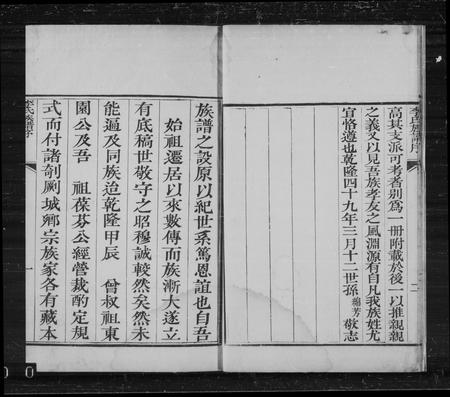 高其支派可考者別為一冊附載於後一以推親親
之義又以見吾族孝友之風淵源有自凡我族姓尤
宜恪遵也乾隆四十九年三月十二世孫繼芳敬志
二
族譜之設原以紀世系篤恩誼也自吾
始祖遷居以來數傳而族漸大遂立
有底稿世敬守之昭穆誠較然矣然未
能遍及同族迨乾隆甲辰 曾叔祖東
園公及吾 祖葆芬公經營裁酌定規
式而付諸剞劂城鄉宗族家各有藏本
李氏族譜序
一